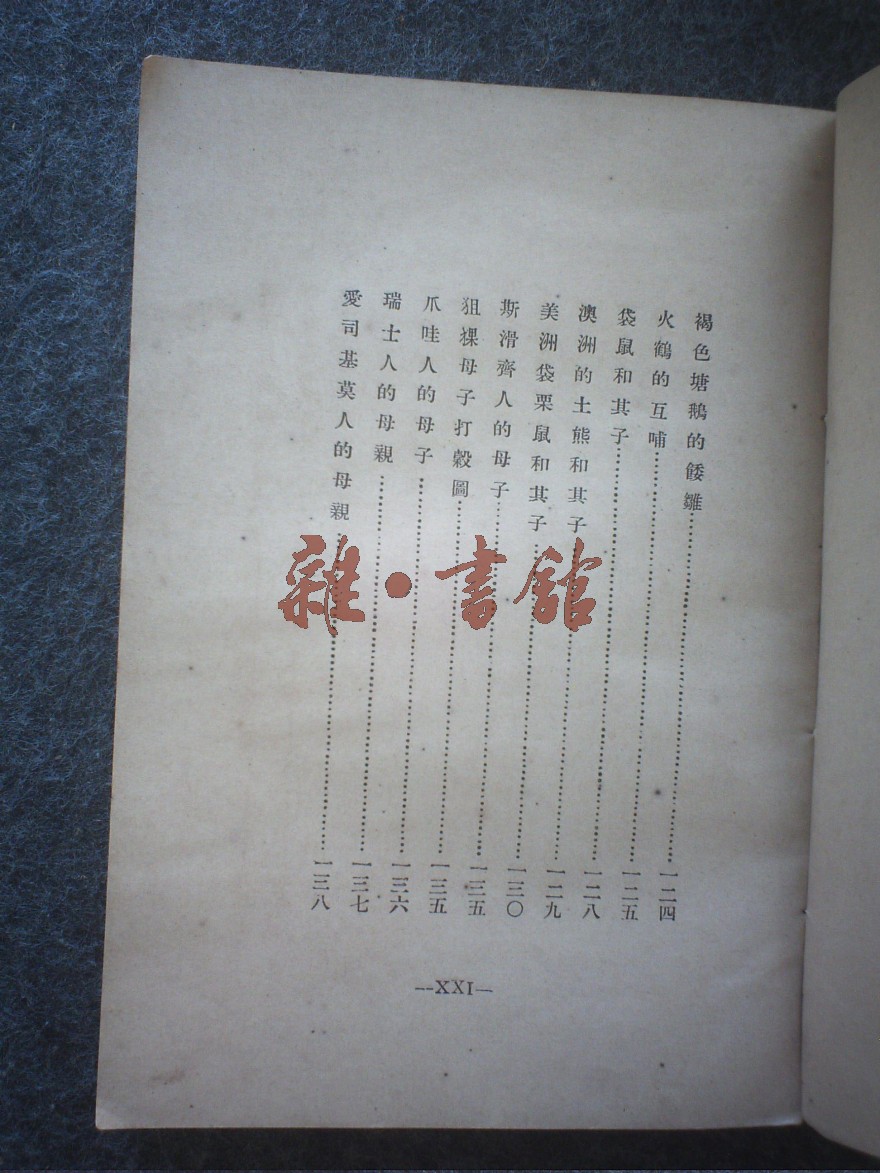 褐色塘鵝的餧雛……一二四
火鶴的互哺……一二五
袋鼠和其子……一二八
澳洲的土熊和其子……一二九
美洲袋栗鼠和其子……一三〇
斯滑齊人的母子……一三五
狙猓母子打穀圖……一三五
爪哇人的母子……一三六
瑞士人的母親……一三七
愛司基莫人的母親……一三八
雜·書館
—XXI—